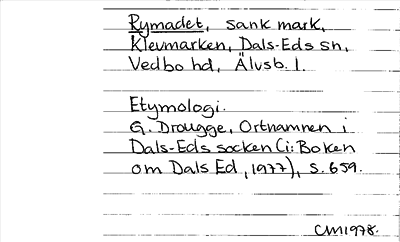 Rymadet, sank mark,
Klevmarken, Dals-Eds sn,
Vedbo hd, Älvsb. l.
Etymologi.
G. Drougge, Ortnamnen i
Dals-Eds socken (i: Boken
om Dals Ed, 1977), s. 659.
CM 1978.